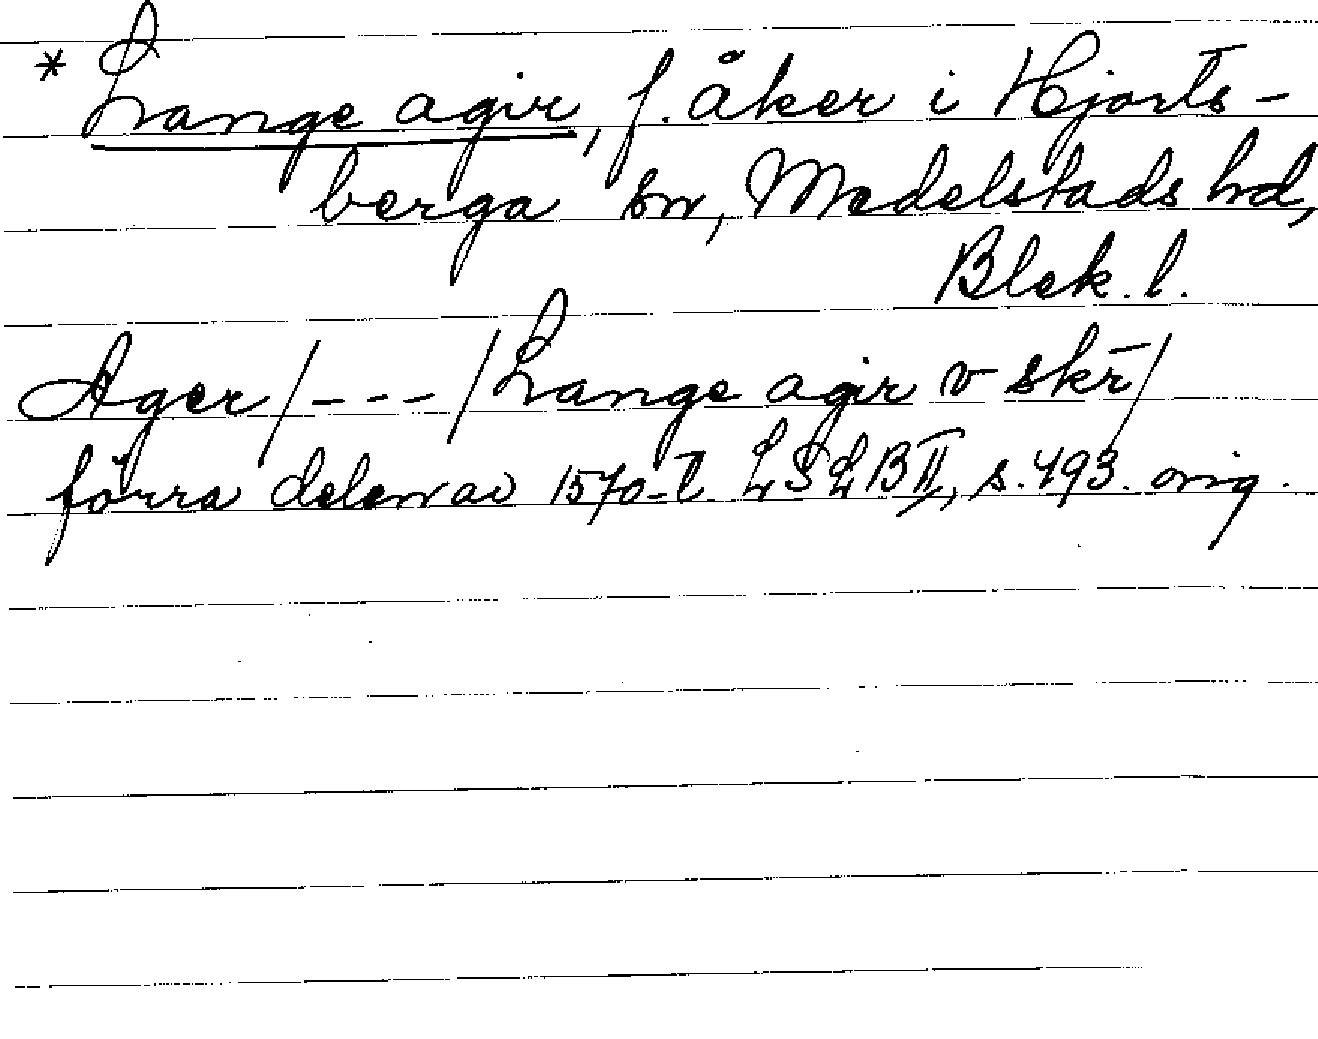 * Lange agir, f. åker i Hjorts-
berga sn, Medelstads hd,
Blek. l.
Ager /---/ Lange agir v skr̄/
förra delen av 1570-t. LSLB II, s. 493. orig.